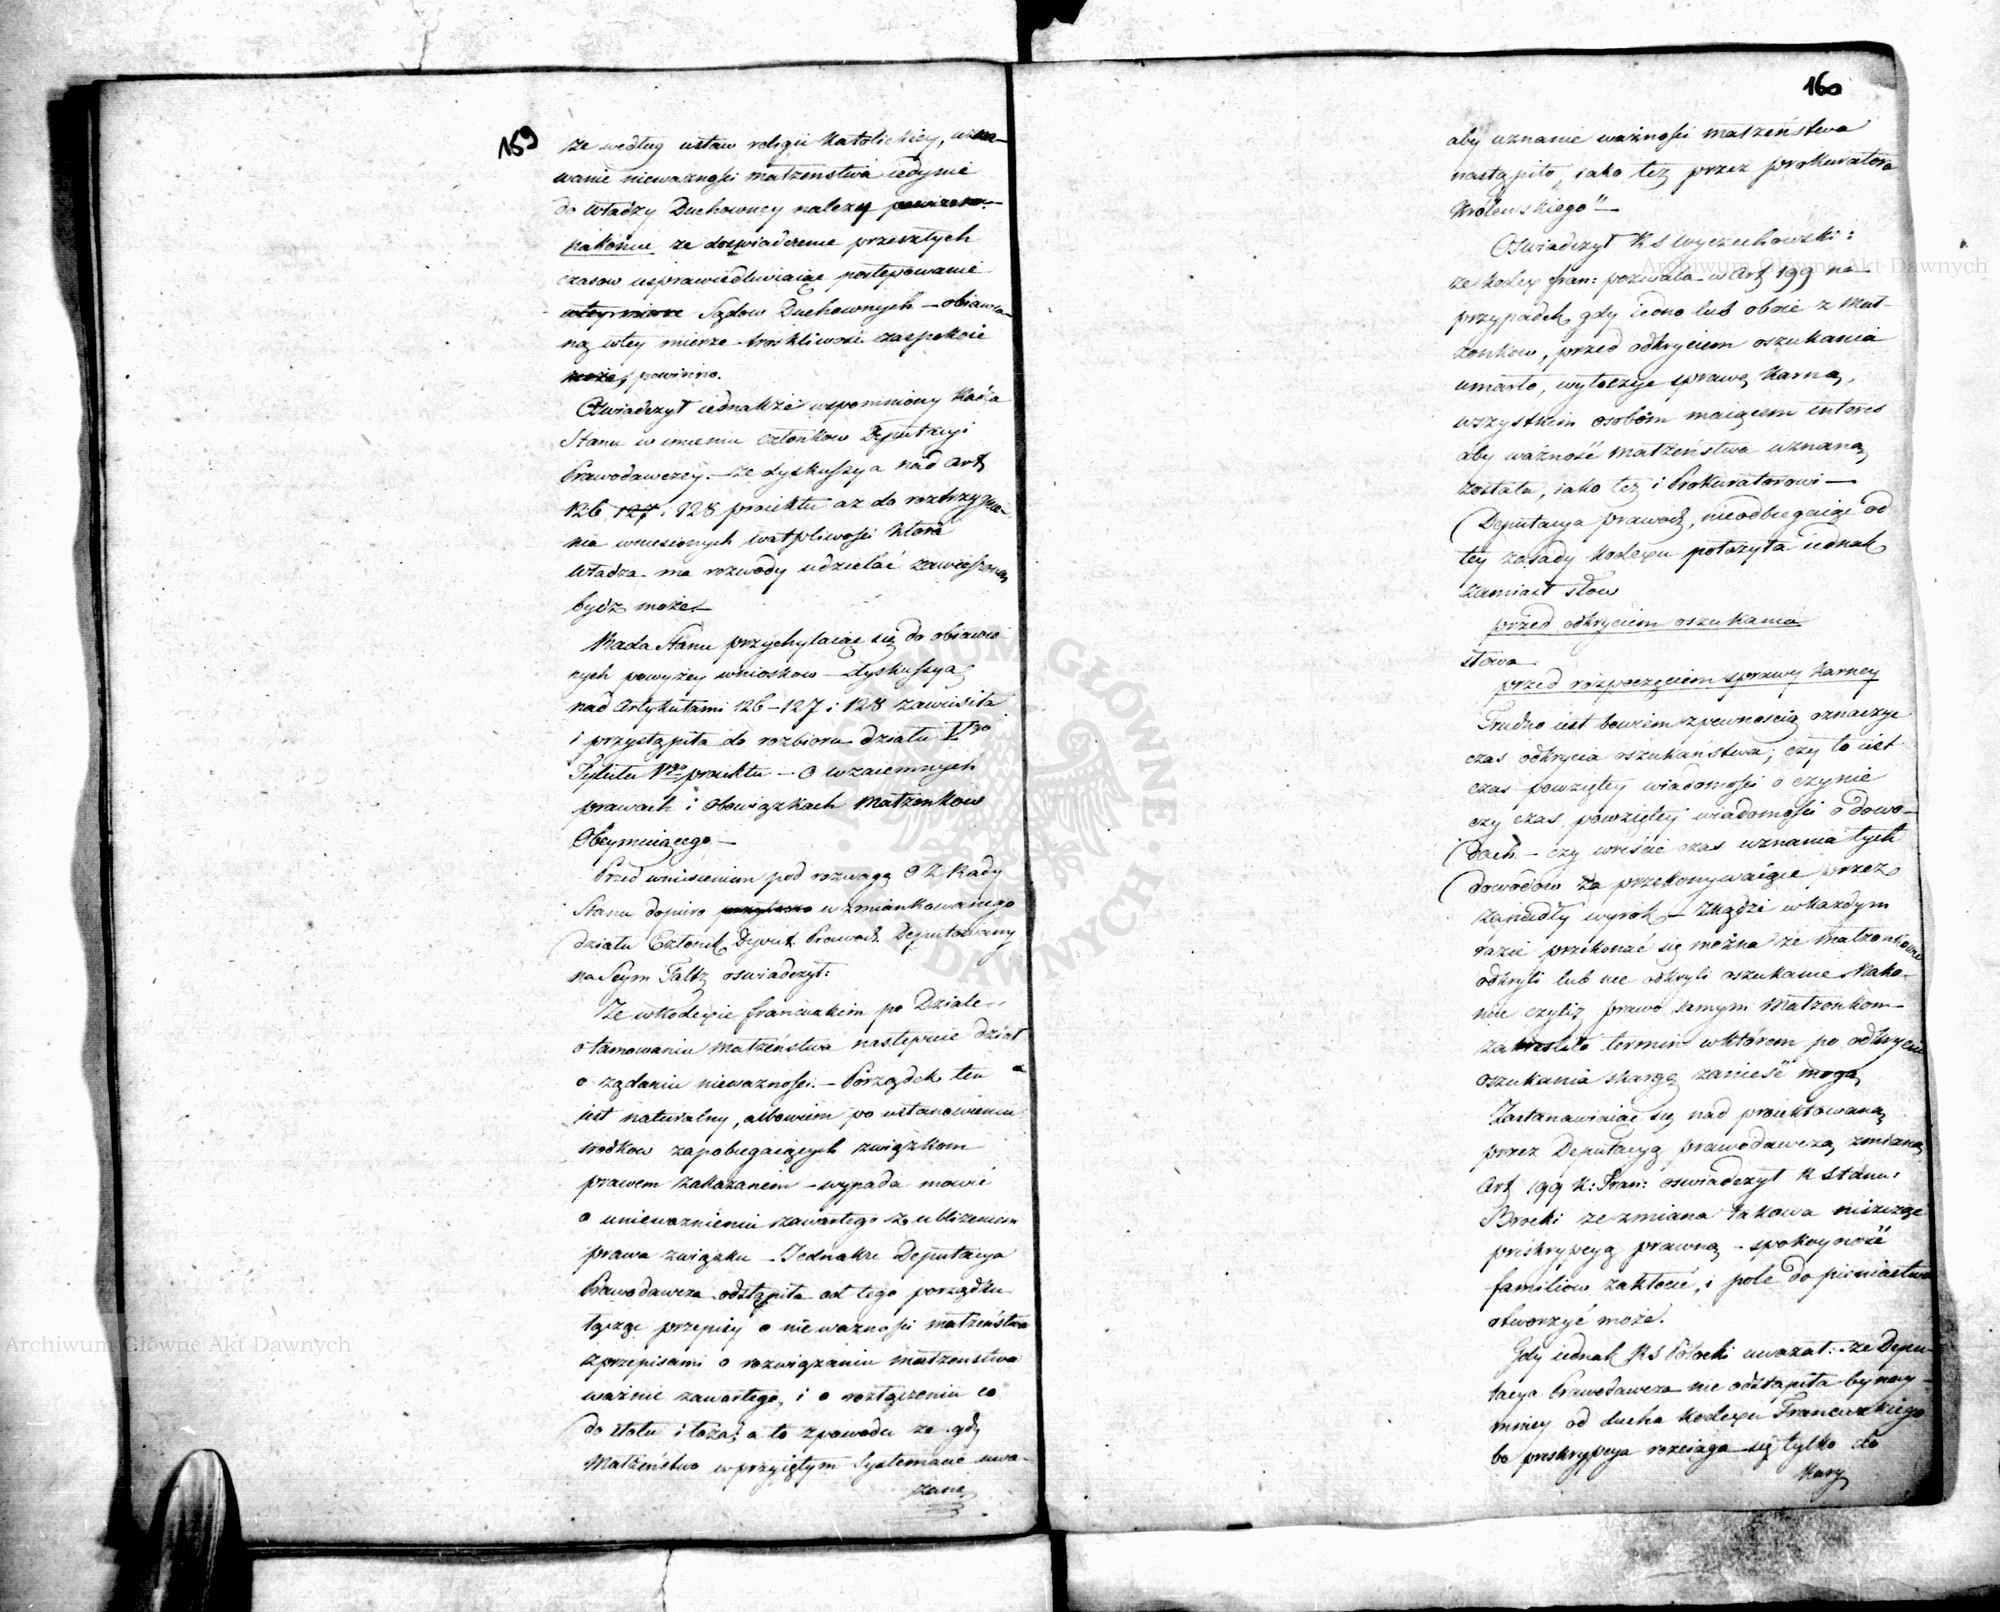 159
że według ustaw religii Katolickiey, uzna-
wanie nieważności małżeństwa iedynie
do władzy Duchowney należy
nakoniec że doświadczenie przeszłych
czasow usprawiedliwiaiąc postępowanie
Sądow Duchownych – obiawio-
ną wtey mierze troskliwość zaspokoić
może, powinno.
Oświadczył iednakże wspomniony Radca
Stanu w imieniu członkow Deputacyi
Prawodawczey – że dyskussya nad Art
126 127 i 128 proiektu aż do roztrzygnie-
nia wniesionych wątpliwości ktora
władza ma rozwody udzielać zawieszoną
bydź może –
Rada Stanu przychylaiąc się do obiawio
nych powyżey wnioskow – dyskussyą
nad Artykułami 126 – 127 i 128 zawiesiła
i przystąpiła do rozbioru działu Vgo
Tytułu Vgo proiektu – O wzaiemnych
prawach i obowiązkach Małżonkow
Obeymuiącego –
Przed wniesieniem pod rozwagę O Z Rady
Stanu dopiero wzmiankowanego
działu Członek Deput. Prawod. Deputowany
na Seym Faltz oświadczył:
Że w Kodexie francuzkim po Dziale
o tamowaniu Małżeństwa następuie dział
o żądaniu nieważności – Porządek ten
iest naturalny, albowiem po ustanowieniu
srodkow zapobiegaiących związkom
prawem zakazanem – wypada mowić
o unieważnieniu zawartego z ubliżeniem
prawa związku – Jednakże Deputacya
Prawodawcza odstąpiła od tego porządku
łącząc przepisy o nieważności małżeństwa
z przepisami o rozwiązaniu małżeństwa
ważnie zawartego, i o rozłączeniu co
do stołu i łoża, a to z powodu że gdy
Małżeństwo w przyiętym Systemacie uwa-
żane
160
aby uznanie ważności małżeństwa
nastąpiło, iako też przez prokuratora
Królewskiego" –
Oświadczył RS Wyczechowski:
że Kodex fran: pozwala w Art 199 na
przypadek gdy iedno lub oboie z Mał-
żonkow, przed odkryciem oszukania
umarło, wytoczyć sprawę karną,
wszystkim osobom maiącem interes
aby ważność małżeństwa uznaną
została, iako też i Prokuratorowi –
Deputacya prawod, nieodbiegaiąc od
tey zasady Kodexu położyła iednak
zamiast słow
przed odkryciem oszukania
słowa
przed rozpoczęciem sprawy karney
Trudno iest bowiem z pewnością oznaczyć
czas odkrycia oszukaństwa; czy to iest
czas powziętey wiadomości o czynie
czy czas powziętey wiadomości o dowo-
dach – czy wreście czas uznania tych
dowodow za przekonywaiące przez
zapadły wyrok – Zkądże wkażdym
razie przekonać się można że małżonkowie
odkryli lub nie odkryli oszukanie Nako-
niec czyliż prawo samym Małżonkom
zakreśliło termin w którem po odkryciu
oszukania skargę zanieść mogą
Zastanawiaiąc się nad proiektowaną
przez Deputacyą prawodawczą zmianą
Art 199 K: Fran: oświadczył R Stanu
Brocki że zmiana takowa niszcząc
preskrypcyą prawną – spokoyność
familiow zakłocić, i pole do pieniactwa
otworzyć może.
Gdy iednak RS Potocki uważał: że Depu-
tacya Prawodawcza nie odstąpiła bynay-
mniey od ducha Kodexu Francuzkiego
bo preskrypcya rozciąga się tylko do
Kary
Archiwum Główne Akt Dawnych
Archiwum Główne Akt Dawnych
ARCHIWUM GŁÓWNE AKT DAWNYCH